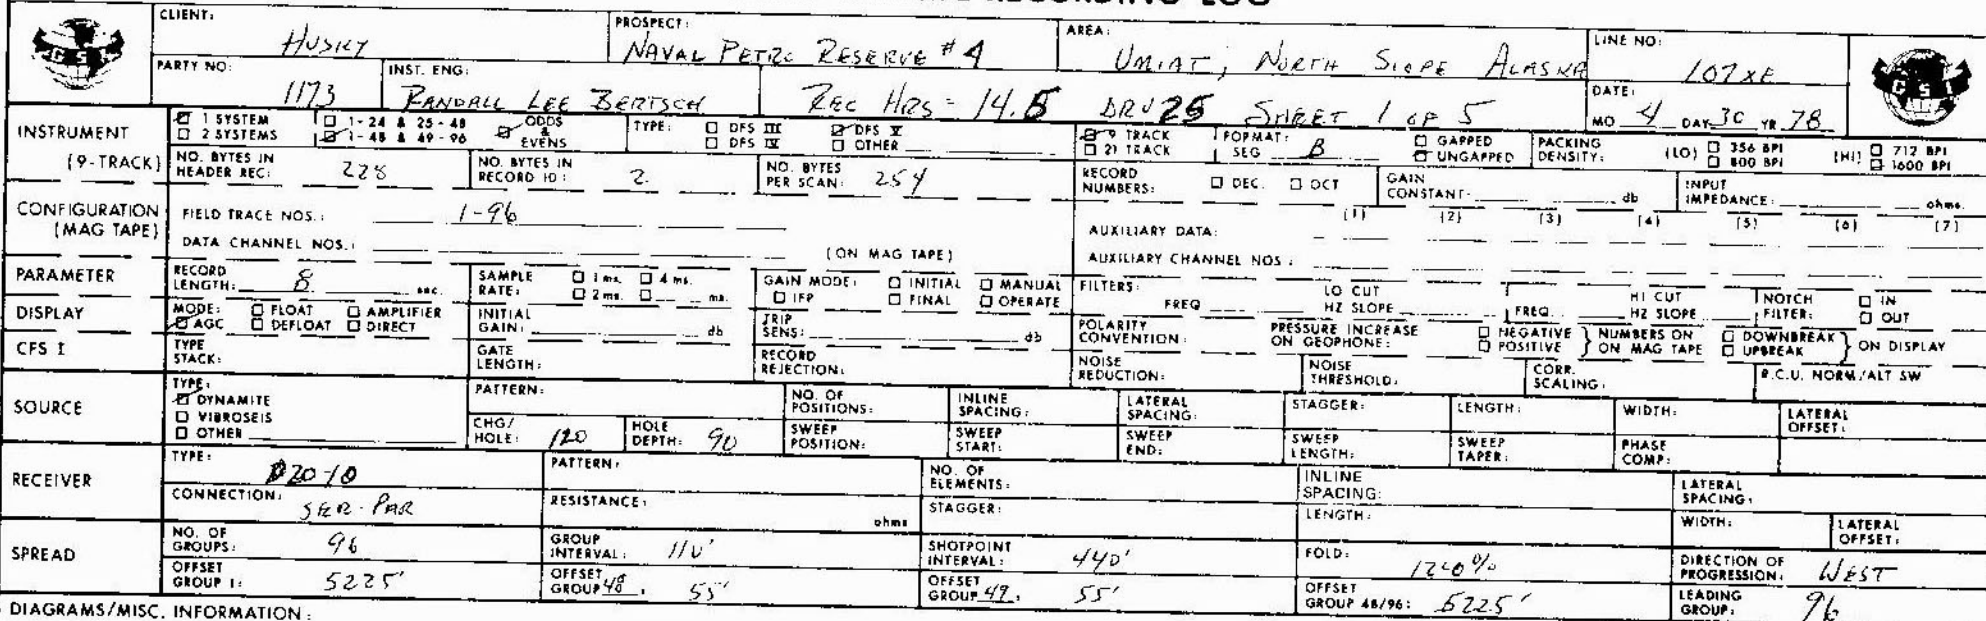 RECORDING LOG
CLIENT: HUSKY PROSPECT: NAVAL PETRO RESERVE #4 AREA: UMIAT, NORTH SLOPE ALASKA LINE NO: 107XE
GSI
PARTY NO: 1173 INST. ENG: RANDALL LEE BERTSCH REC HRS = 14.5 DRV 25 SHEET 1 OF 5 DATE: MO 4 DAY 30 YR 78
INSTRUMENT 1 SYSTEM 1-24 & 25-48 ODDS & EVENS TYPE: DFS III DFS V 9 TRACK FORMAT: GAPPED PACKING DENSITY: (LO) 356 BPI (HI) 712 BPI
2 SYSTEMS 1-48 & 49-96 DFS IV OTHER 21 TRACK SEG B UNGAPPED 800 BPI 1600 BPI
(9-TRACK) NO. BYTES IN HEADER REC: 228 NO. BYTES IN RECORD ID: 2 NO. BYTES PER SCAN: 254 RECORD NUMBERS: DEC. OCT GAIN CONSTANT: db INPUT IMPEDANCE: ohms.
CONFIGURATION (MAG TAPE) FIELD TRACE NOS.: 1-96 AUXILIARY DATA: (1) (2) (3) (4) (5) (6) (7)
DATA CHANNEL NOS.: (ON MAG TAPE) AUXILIARY CHANNEL NOS:
PARAMETER RECORD LENGTH: 8 sec. SAMPLE RATE: 1 ms. 4 ms. 2 ms. ms. GAIN MODE: INITIAL MANUAL IFP FINAL OPERATE FILTERS: FREQ LO CUT HZ SLOPE FREQ HI CUT HZ SLOPE NOTCH FILTER: IN OUT
DISPLAY MODE: FLOAT AMPLIFIER AGC DEFLOAT DIRECT INITIAL GAIN: db TRIP SENS: db POLARITY CONVENTION: PRESSURE INCREASE ON GEOPHONE: NEGATIVE POSITIVE NUMBERS ON MAG TAPE DOWNBREAK UPBREAK ON DISPLAY
CFS I TYPE STACK: GATE LENGTH: RECORD REJECTION: NOISE REDUCTION: NOISE THRESHOLD: CORR. SCALING: R.C.U. NORM/ALT SW
SOURCE TYPE: DYNAMITE VIBROSEIS OTHER PATTERN: NO. OF POSITIONS: INLINE SPACING: LATERAL SPACING: STAGGER: LENGTH: WIDTH: LATERAL OFFSET:
CHG/HOLE: 120 HOLE DEPTH: 90 SWEEP POSITION: SWEEP START: SWEEP END: SWEEP LENGTH: SWEEP TAPER: PHASE COMP:
RECEIVER TYPE: 20-10 PATTERN: NO. OF ELEMENTS: INLINE SPACING: LATERAL SPACING:
CONNECTION: SER-PAR RESISTANCE: ohms STAGGER: LENGTH: WIDTH: LATERAL OFFSET:
SPREAD NO. OF GROUPS: 96 GROUP INTERVAL: 110' SHOTPOINT INTERVAL: 440' FOLD: 1200% DIRECTION OF PROGRESSION: WEST
OFFSET GROUP 1: 5225' OFFSET GROUP 48: 55' OFFSET GROUP 49: 55' OFFSET GROUP 48/96: 5225' LEADING GROUP: 96
DIAGRAMS/MISC. INFORMATION: